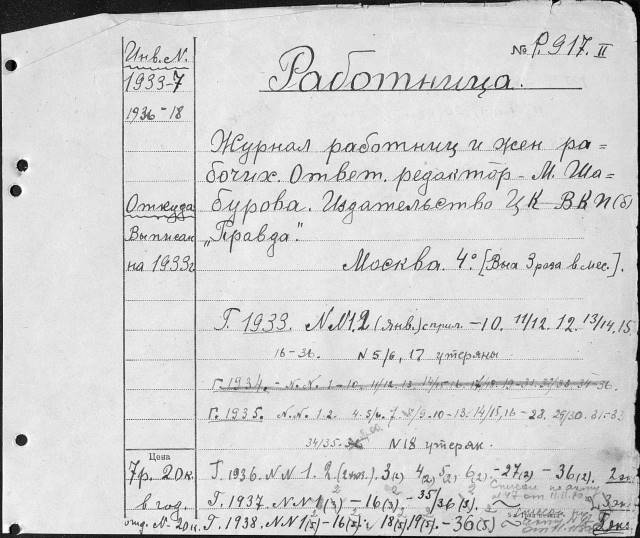 Инв. N.
1933-7
1936-18
№ Р. 917. II
Работница.
Журнал работниц и жен ра-
бочих. Ответ. редактор - М. Ша-
бурова. Издательство ЦК ВКП(б)
„Правда".
Москва. 4° [Вых 3 раза в мес.].
Откуда
Выписан
на 1933г
Г. 1933. N N 1.2 (янв.) с прил. - 10. 11/12. 12. 13/14. 15
16-36. N 5/6, 17 утеряны
Г. 1934. - N. N. 1-10. 11/12. 13.
Г. 1935. N. N. 1. 2. 4. 5/6. 10-13. 14/15, 16 - 28. 29/30. 31-33
34/35. N 18 утерян.
Цена
7р. 20к.
в год.
отд. N. 20к.
Г. 1936. N N 1. 2. 3(2) 4(2), 5(2), 6(2), -27(2) - 36(2).
Г. 1937. N N 1(3) - 16(3), -35/36(3).
Г. 1938. N N 1(5) - 16(5) 18(5) 19(5). - 36(5)